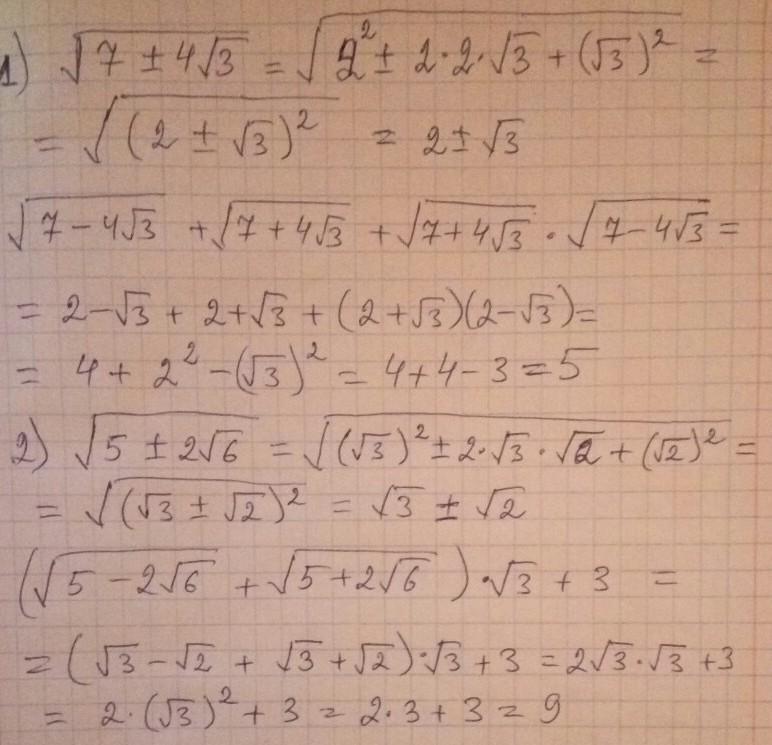 1) √(7 ± 4√3) = √(2² ± 2·2·√3 + (√3)²) =
= √((2 ± √3)²) = 2 ± √3
√(7 − 4√3) + √(7 + 4√3) + √(7 + 4√3) · √(7 − 4√3) =
= 2 − √3 + 2 + √3 + (2 + √3)(2 − √3) =
= 4 + 2² − (√3)² = 4 + 4 − 3 = 5
2) √(5 ± 2√6) = √((√3)² ± 2·√3·√2 + (√2)²) =
= √((√3 ± √2)²) = √3 ± √2
(√(5 − 2√6) + √(5 + 2√6))·√3 + 3 =
= (√3 − √2 + √3 + √2)·√3 + 3 = 2√3·√3 + 3
= 2·(√3)² + 3 = 2·3 + 3 = 9